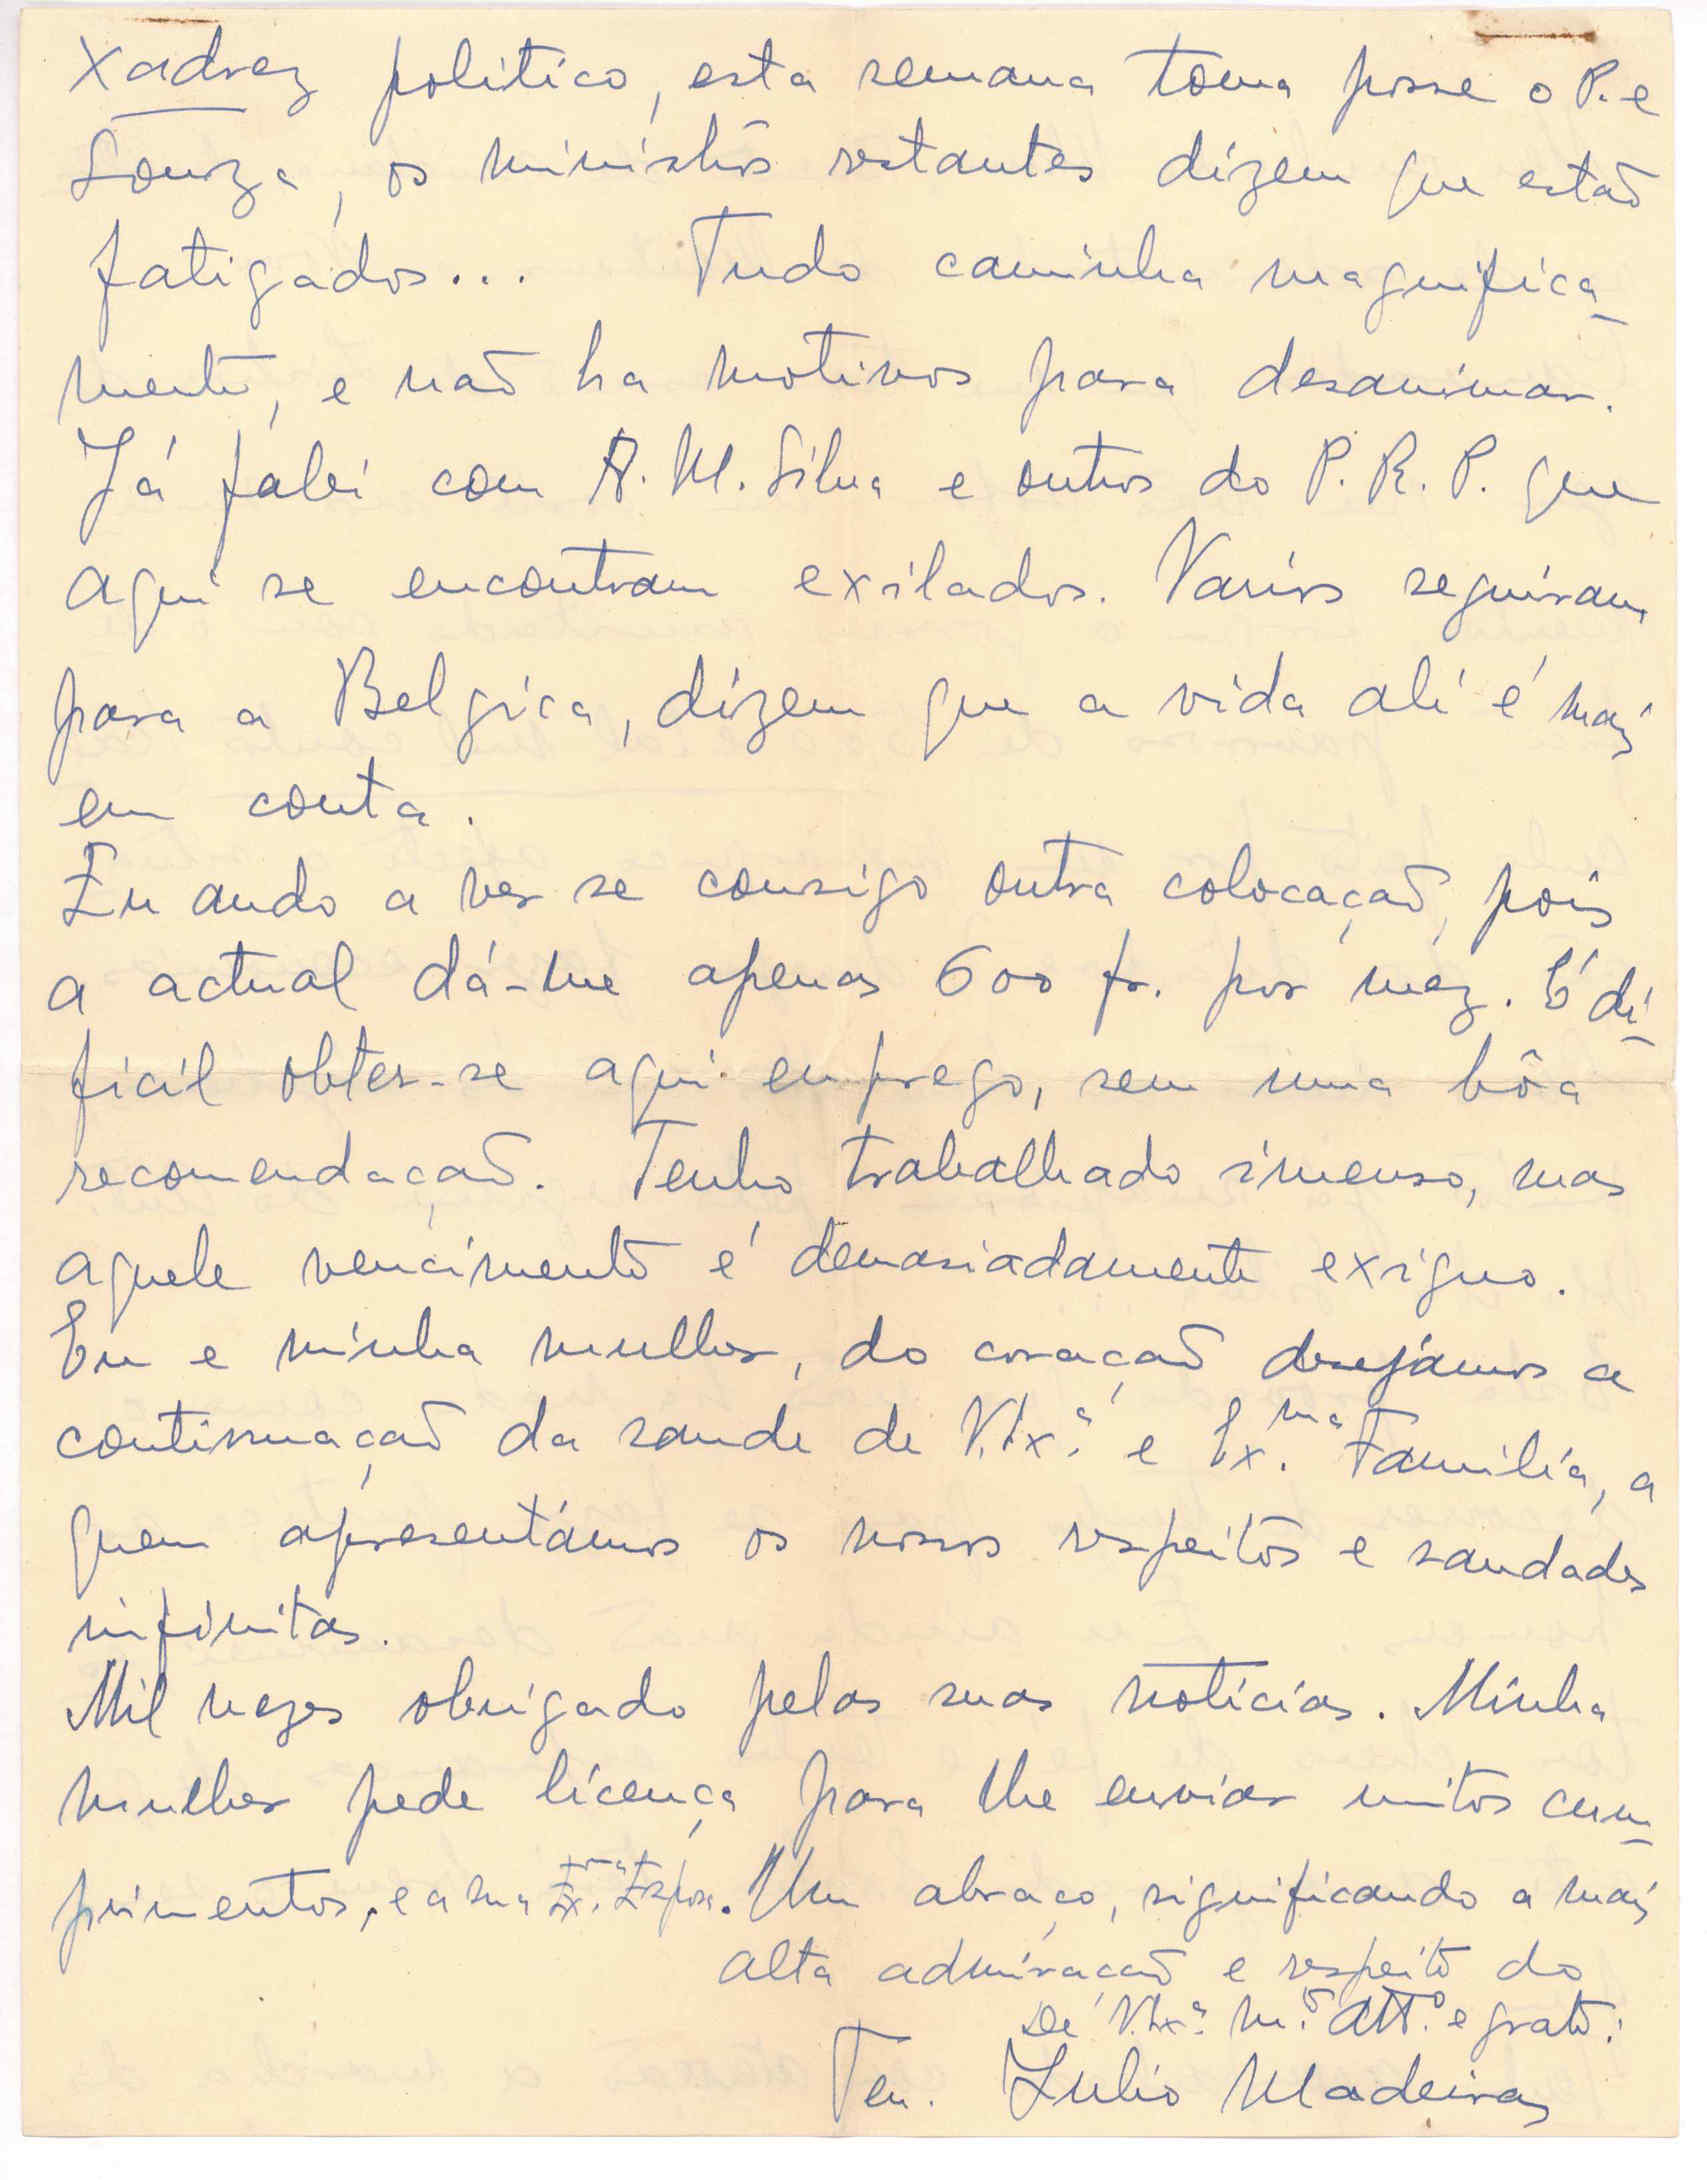 Xadrez politico, esta semana toma posse o P.e
Souza, os ministros restantes dizem que estaõ
fatigados... Tudo caminha magnifica-
mente, e naõ ha motivos para desanimar.
Já falei com A. M. Silva e outros do P. R. P. que
aqui se encontram exilados. Varios seguiram
para a Belgica, dizem que a vida ali é mais
em conta.
Eu ando a ver se consigo outra colocaçaõ, pois
a actual dá-me apenas 600 fr. por mez. É di-
ficil obter-se aqui emprego, sem uma bôa
recomendaçaõ. Tenho trabalhado imenso, mas
aquele vencimento é demasiadamente exiguo.
Eu e minha mulher, do coraçaõ desejámos a
continuaçaõ da saude de V. Ex.ª e Ex.ma Familia, a
quem apresentámos os nossos respeitos e saudades
infinitas.
Mil vezes obrigado pelas suas noticias. Minha
mulher pede licença para lhe enviar muitos cum-
primentos, e a sua Ex.ma Esposa. Um abraço, significando a mais
alta admiraçaõ e respeito do
De V. Ex.ª m.to att.o e grato:
Ten. Julio Madeira